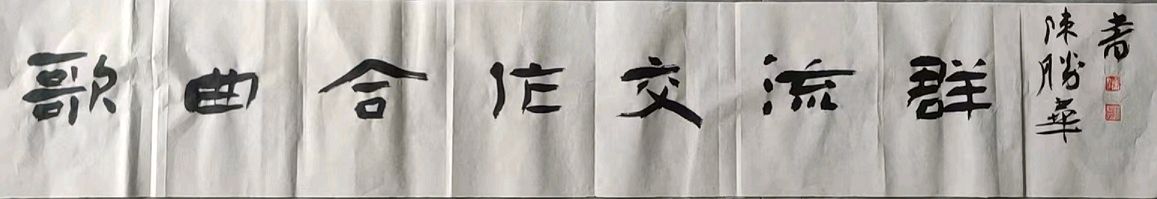 歌曲合作交流群
陳勝華
書